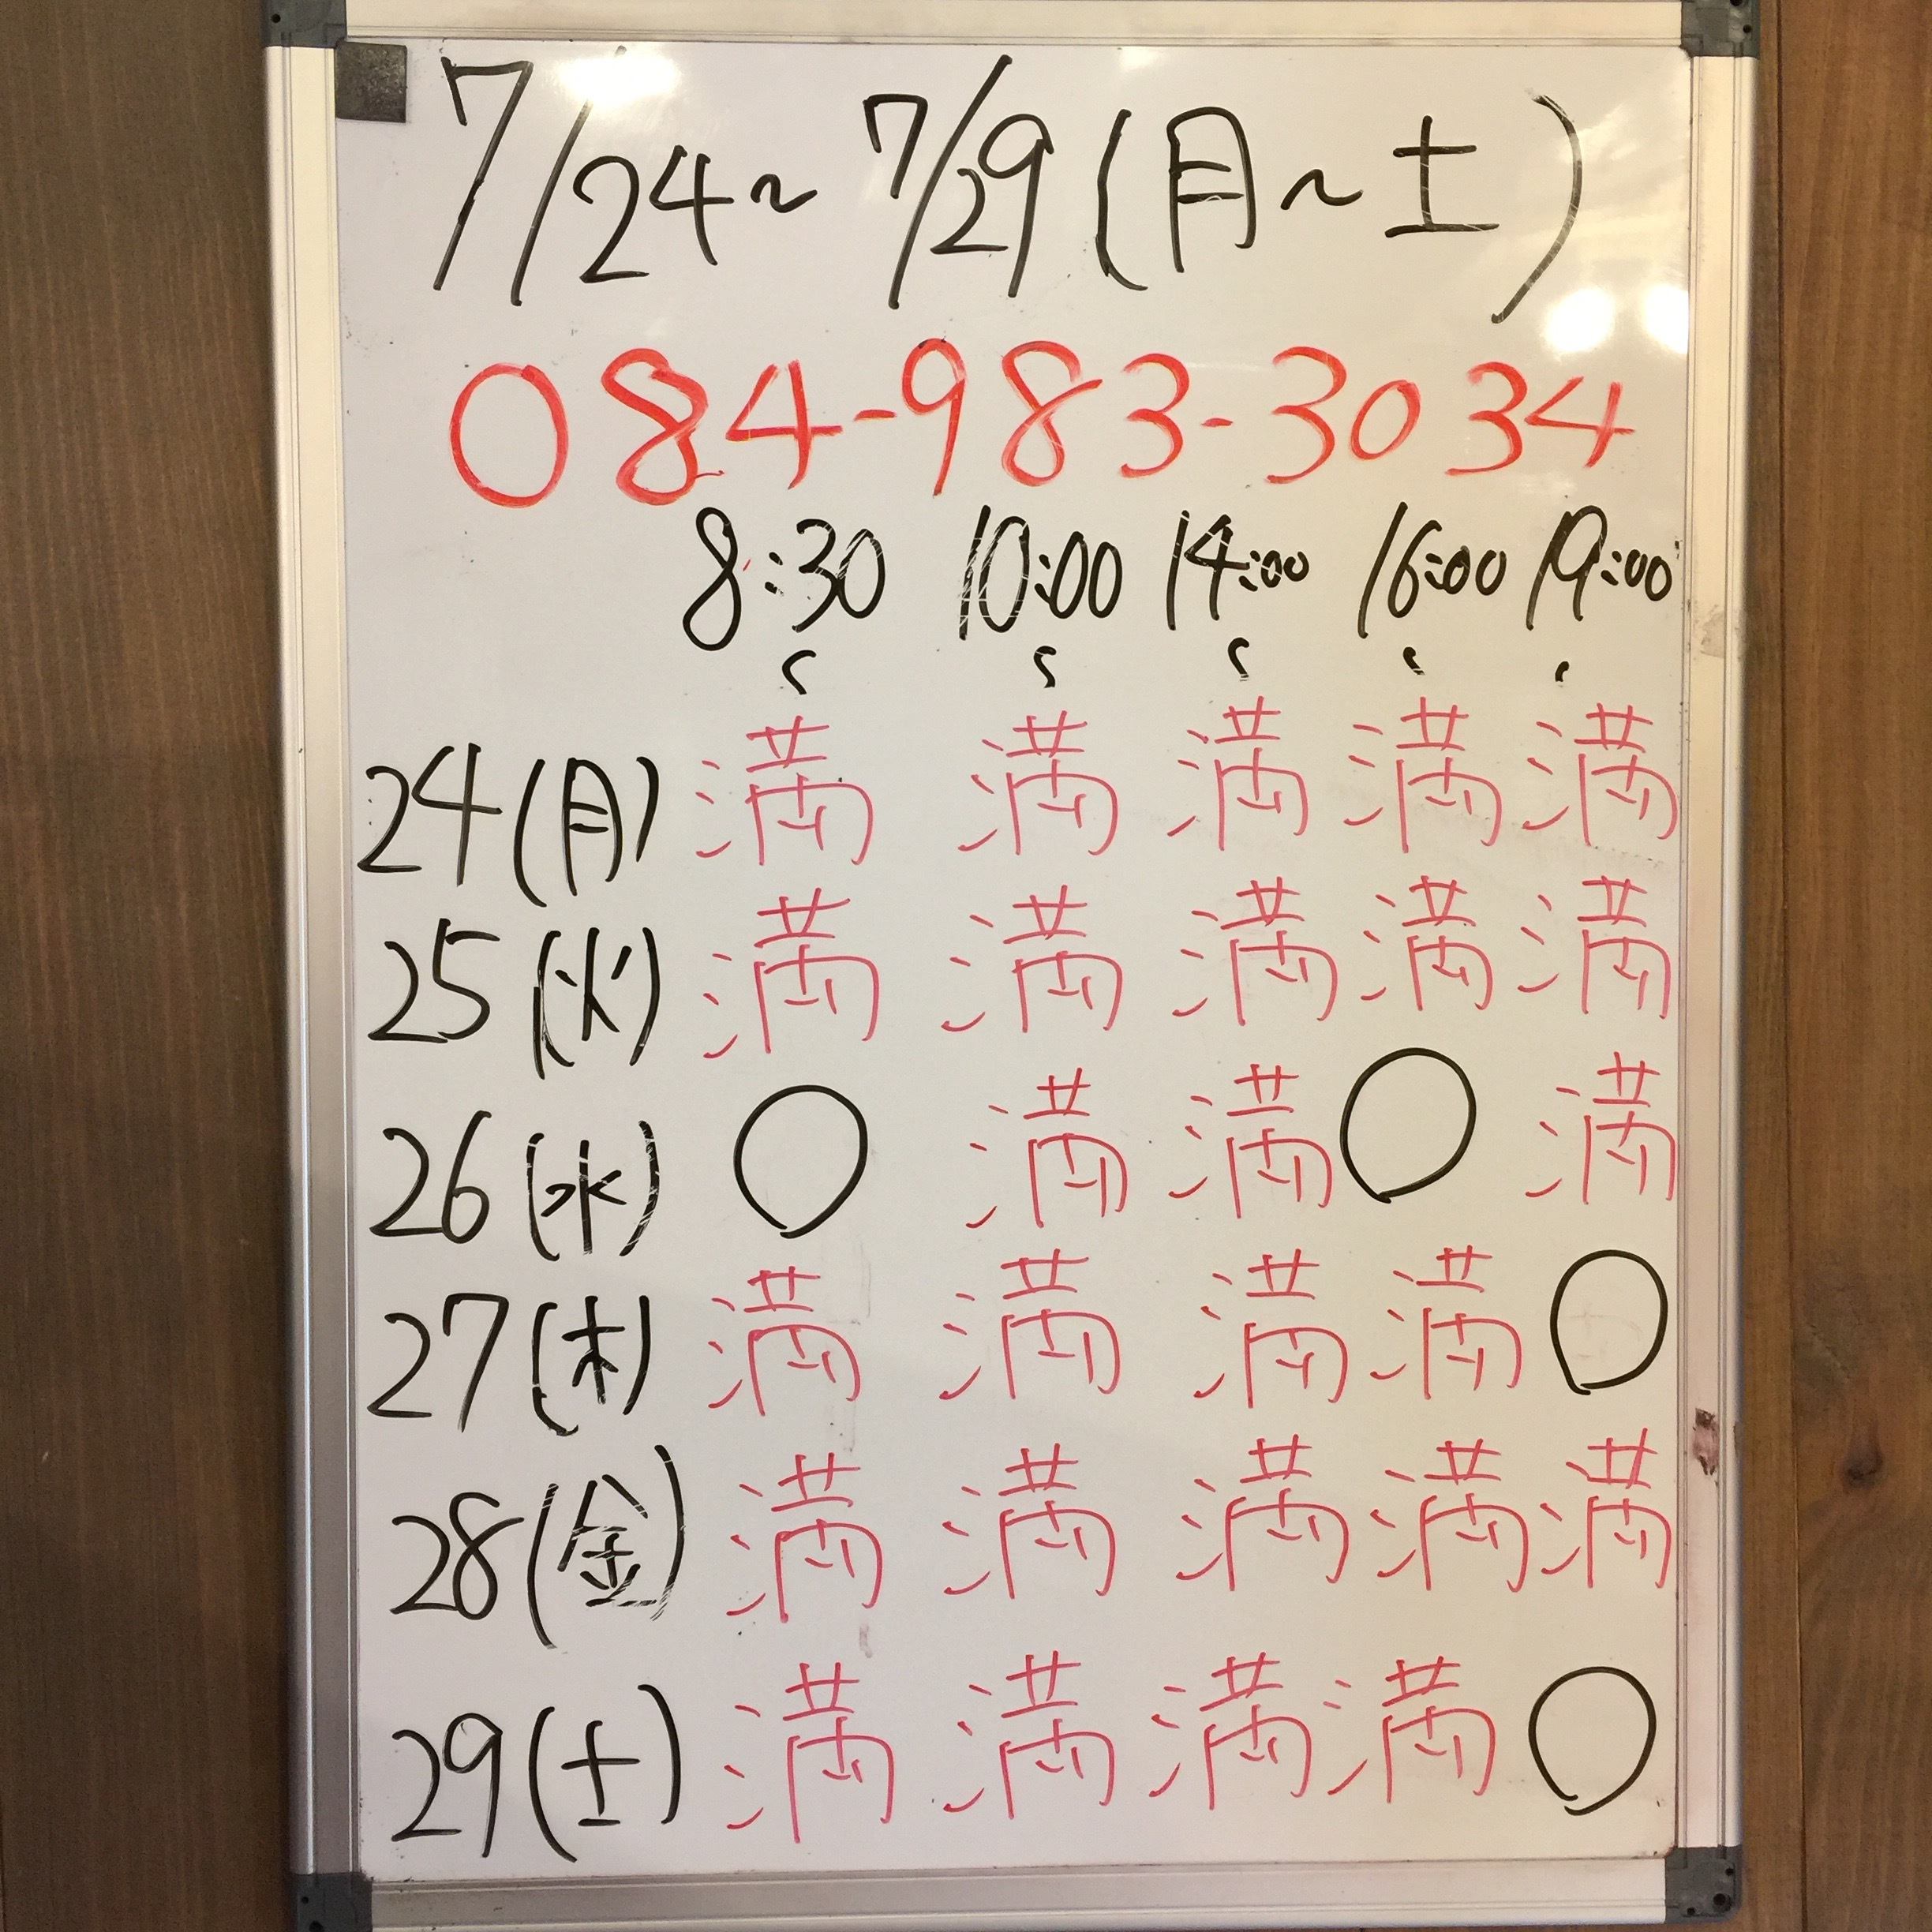 7/24～7/29(月～土)
084-983-3034
8:30 10:00 14:00 16:00 19:00
～ ～ ～ ～ ～
24(月) 満 満 満 満 満
25(火) 満 満 満 満 満
26(水) ○ 満 満 ○ 満
27(木) 満 満 満 満 ○
28(金) 満 満 満 満 満
29(土) 満 満 満 満 ○